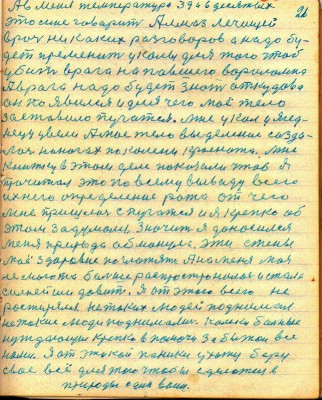 26
А в меня температура 39 и 6 десятых
это мне говорит Алмаз лечащей
врач никаких разговоров а надо бу-
дет применить уколы для того чтоб
убить врага напавшего
А врага надо будет знать откудова
он появился и для чего моё тело
заставило пугатся. Мне укол у ягод-
ницу двели А моё тело выделение созда-
ла на ногах по колени краснота. Мне
книжку в этом деле показали что я
прочитал это по всему выводу всего
ихнего определение рота от чего
мне пришлось спугатся и я крепко об
этом задумал Значит я доносился
меня природа обманула. Эти стены
моё здоровие А на меня моя
болие распространилася и стала
сильней меня давить. Я от этого всего не
растерялся не таких людей поднимал
не такие люди поднимались. Колись больные
нуждающие крепко в помочи За бытом все
нами. Я от этакой паники ухожу беру
свое всё для того чтобы сделатся в
природы один воин.